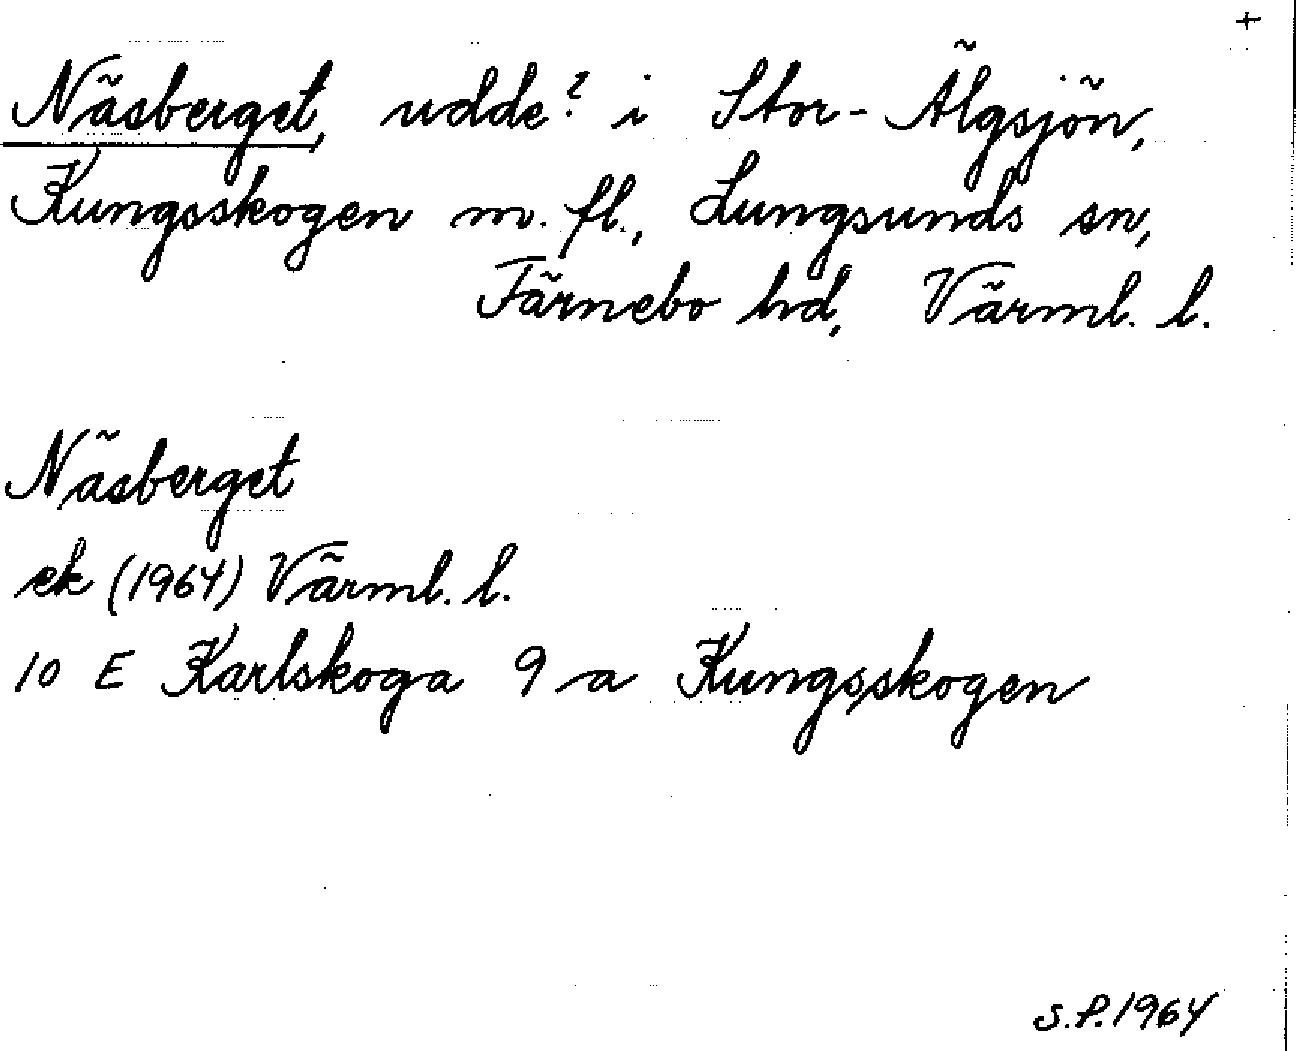 +
Näsberget, udde? i Stor-Älgsjön,
Kungsskogen m. fl., Lungsunds sn,
Färnebo hd, Värml. l.
Näsberget
ek (1964) Värml. l.
10 E Karlskoga 9 a Kungsskogen
S.P. 1964